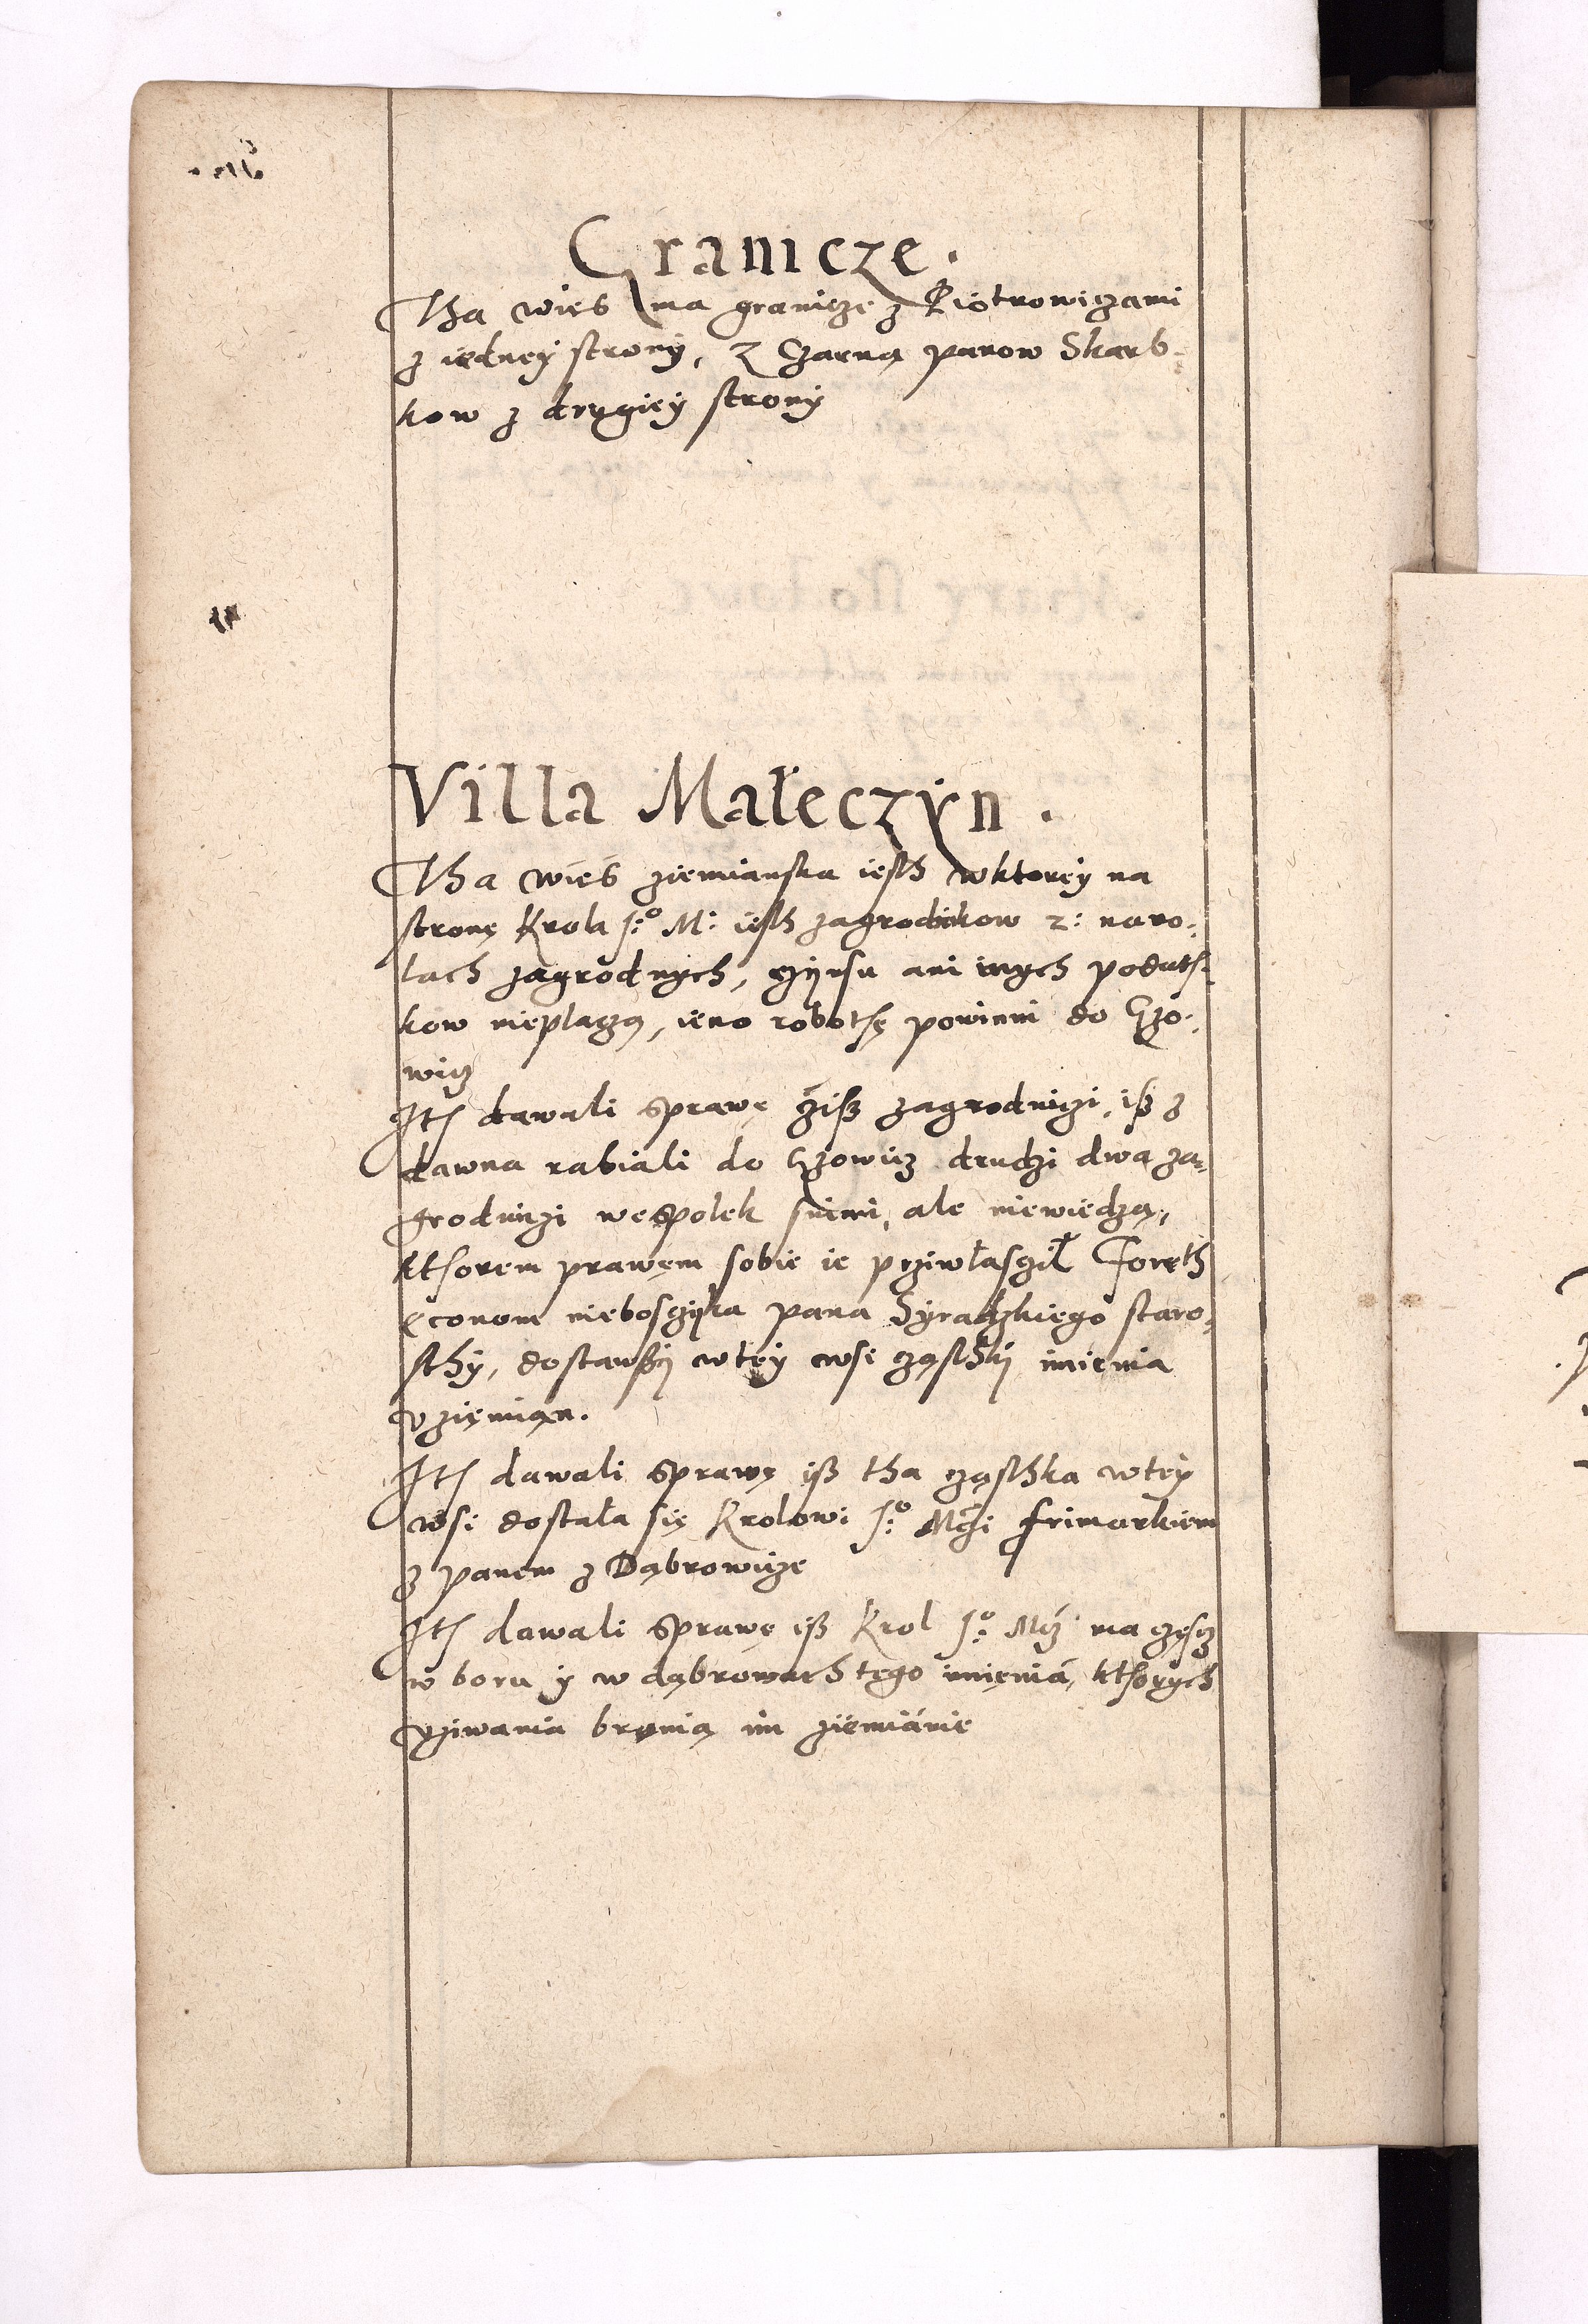 Granicze.
Tha wieś ma granicze z Piotrowiczami
z iedney strony, z Czarną panow Skarb-
kow z drugiey strony
Villa Małeczÿn.
Tha wieś ziemianska iesth wktorey na
stronę Krola J:º M: iesth zagrodnikow 2: naro-
lach zagrodnych, czÿnsu ani inych podath-
kow nieplaczą, ieno robothę powinni do Czo-
wicz
Ith dawali sprawę cziß zagrodniczi, iß z
dawna rabiali do Czowicz drudzi dwa za-
grodniczi wespolek snimi, ale niewiedzą,
kthorem prawem sobie ie prziwłascził Foreth
econom nieboscziyka pana Syradzkiego staro-
sthy, dostawszÿ wtey wsi cząsthki imienia
v ziemian.
Ith dawali sprawę iß tha cząsthka wtey
wsi dostała się Krolowi J:º Mczi frimarkiem
z panem z Dąbrowicze
Ith dawali sprawę iß Krol J:º Mcz ma czescz
w boru ÿ w dąbrowach tego imienia, kthorych
vziwania bronią im ziemianie